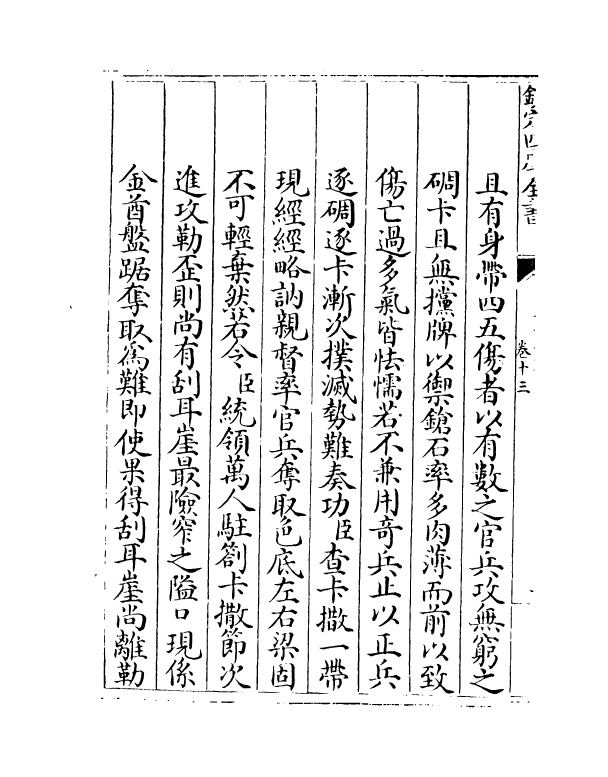 欽定四庫全書
卷十三
且有身帶四五傷者以有數之官兵攻無窮之
碉卡且無攩牌以禦鎗石率多肉薄而前以致
傷亡過多氣皆怯懦若不兼用奇兵止以正兵
逐碉逐卡漸次撲滅勢難奏功臣查卡撒一帶
現經經略訥親督率官兵奪取色底左右梁固
不可輕棄然若令臣統領萬人駐劄卡撒節次
進攻勒歪則尚有刮耳崖最險窄之隘口現係
金酋盤踞奪取爲難即使果得刮耳崖尚離勒